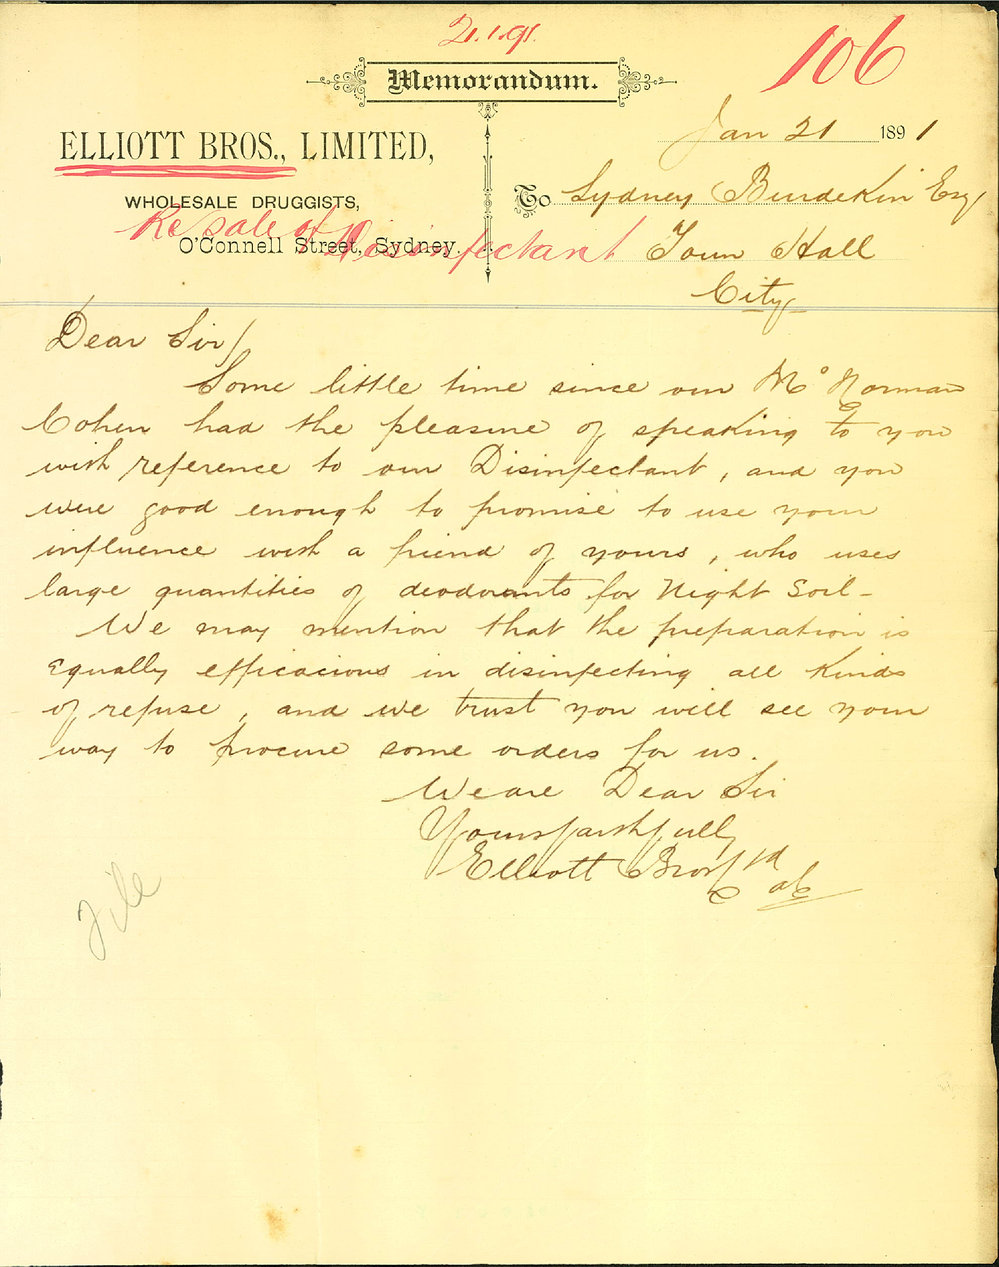 21.1.91.
106
Memorandum.
Jan 21 1891
ELLIOTT BROS., LIMITED,
WHOLESALE DRUGGISTS,
O'Connell Street, Sydney.
Re sale of Disinfectant
To Sydney Burdekin Esq
Town Hall
City
Dear Sir/
Some little time since our Mr Norman
Cohen had the pleasure of speaking to you
with reference to our Disinfectant, and you
were good enough to promise to use your
influence with a friend of yours, who uses
large quantities of deodorants for Night Soil -
We may mention that the preparation is
Equally efficacious in disinfecting all kinds
of refuse, and we trust you will see your
way to procure some orders for us.
We are Dear Sir
Yours faithfully
Elliott Bros Ld
File